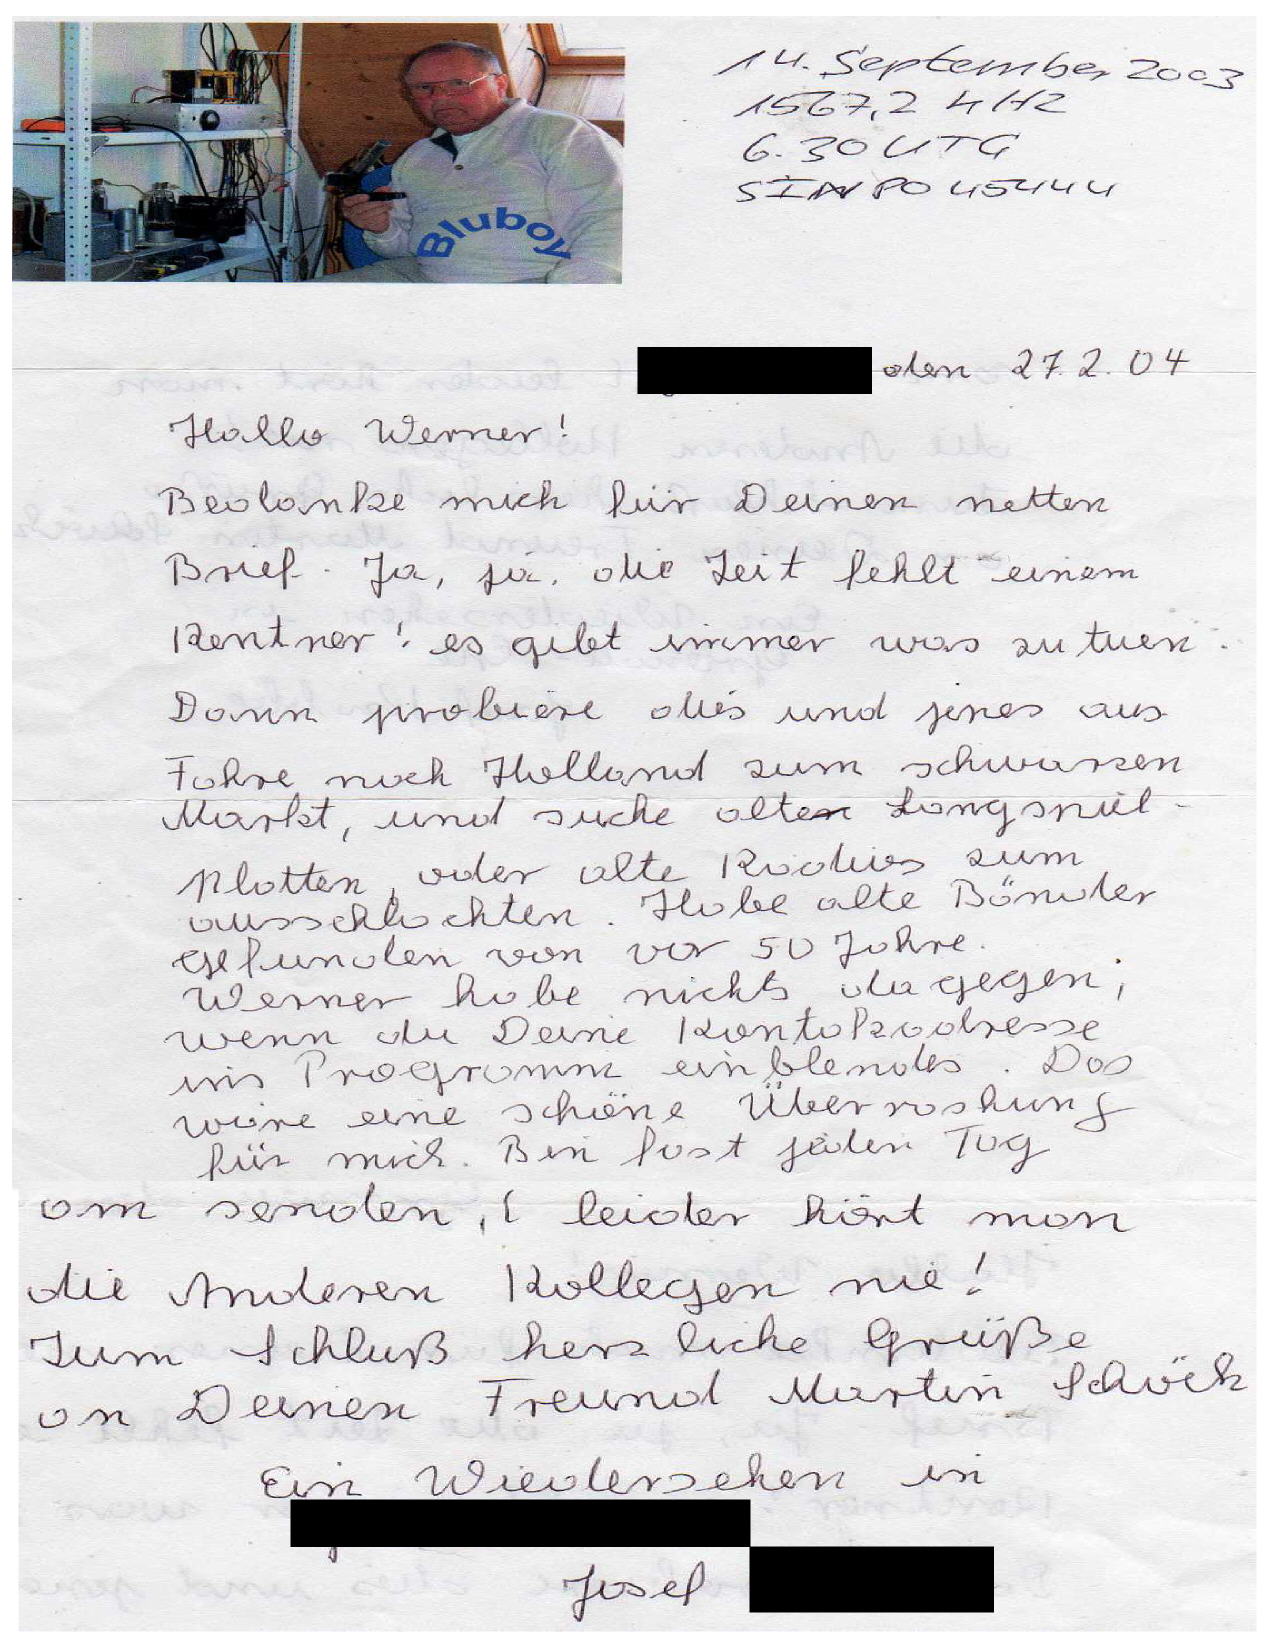 Bluboy
14. September 2003
1567,2 KHZ
6.30 UTC
SINPO 45444
den 27.2.04
Hallo Werner!
Bedanke mich für Deinen netten
Brief. Ja, ja, die Zeit fehlt einem
Rentner! es gibt immer was zu tuen.
Dann probiere dies und jenes aus
Fahre nach Holland zum schwarzen
Markt, und suche alten Langspiel-
platten, oder alte Radios zum
ausschlachten. Habe alte Bänder
gefunden von vor 50 Jahre.
Werner habe nichts dagegen,
wenn du Deine Kontakadresse
ins Programm einblendes. Das
wäre eine schöne Überraschung
für mich. Bin fast jeden Tag
am senden, leider hört man
die Anderen Kollegen nie!
Zum Schluß herzliche Grüße
an Deinen Freund Martin Schöck
Ein Wiedersehen in
Josef